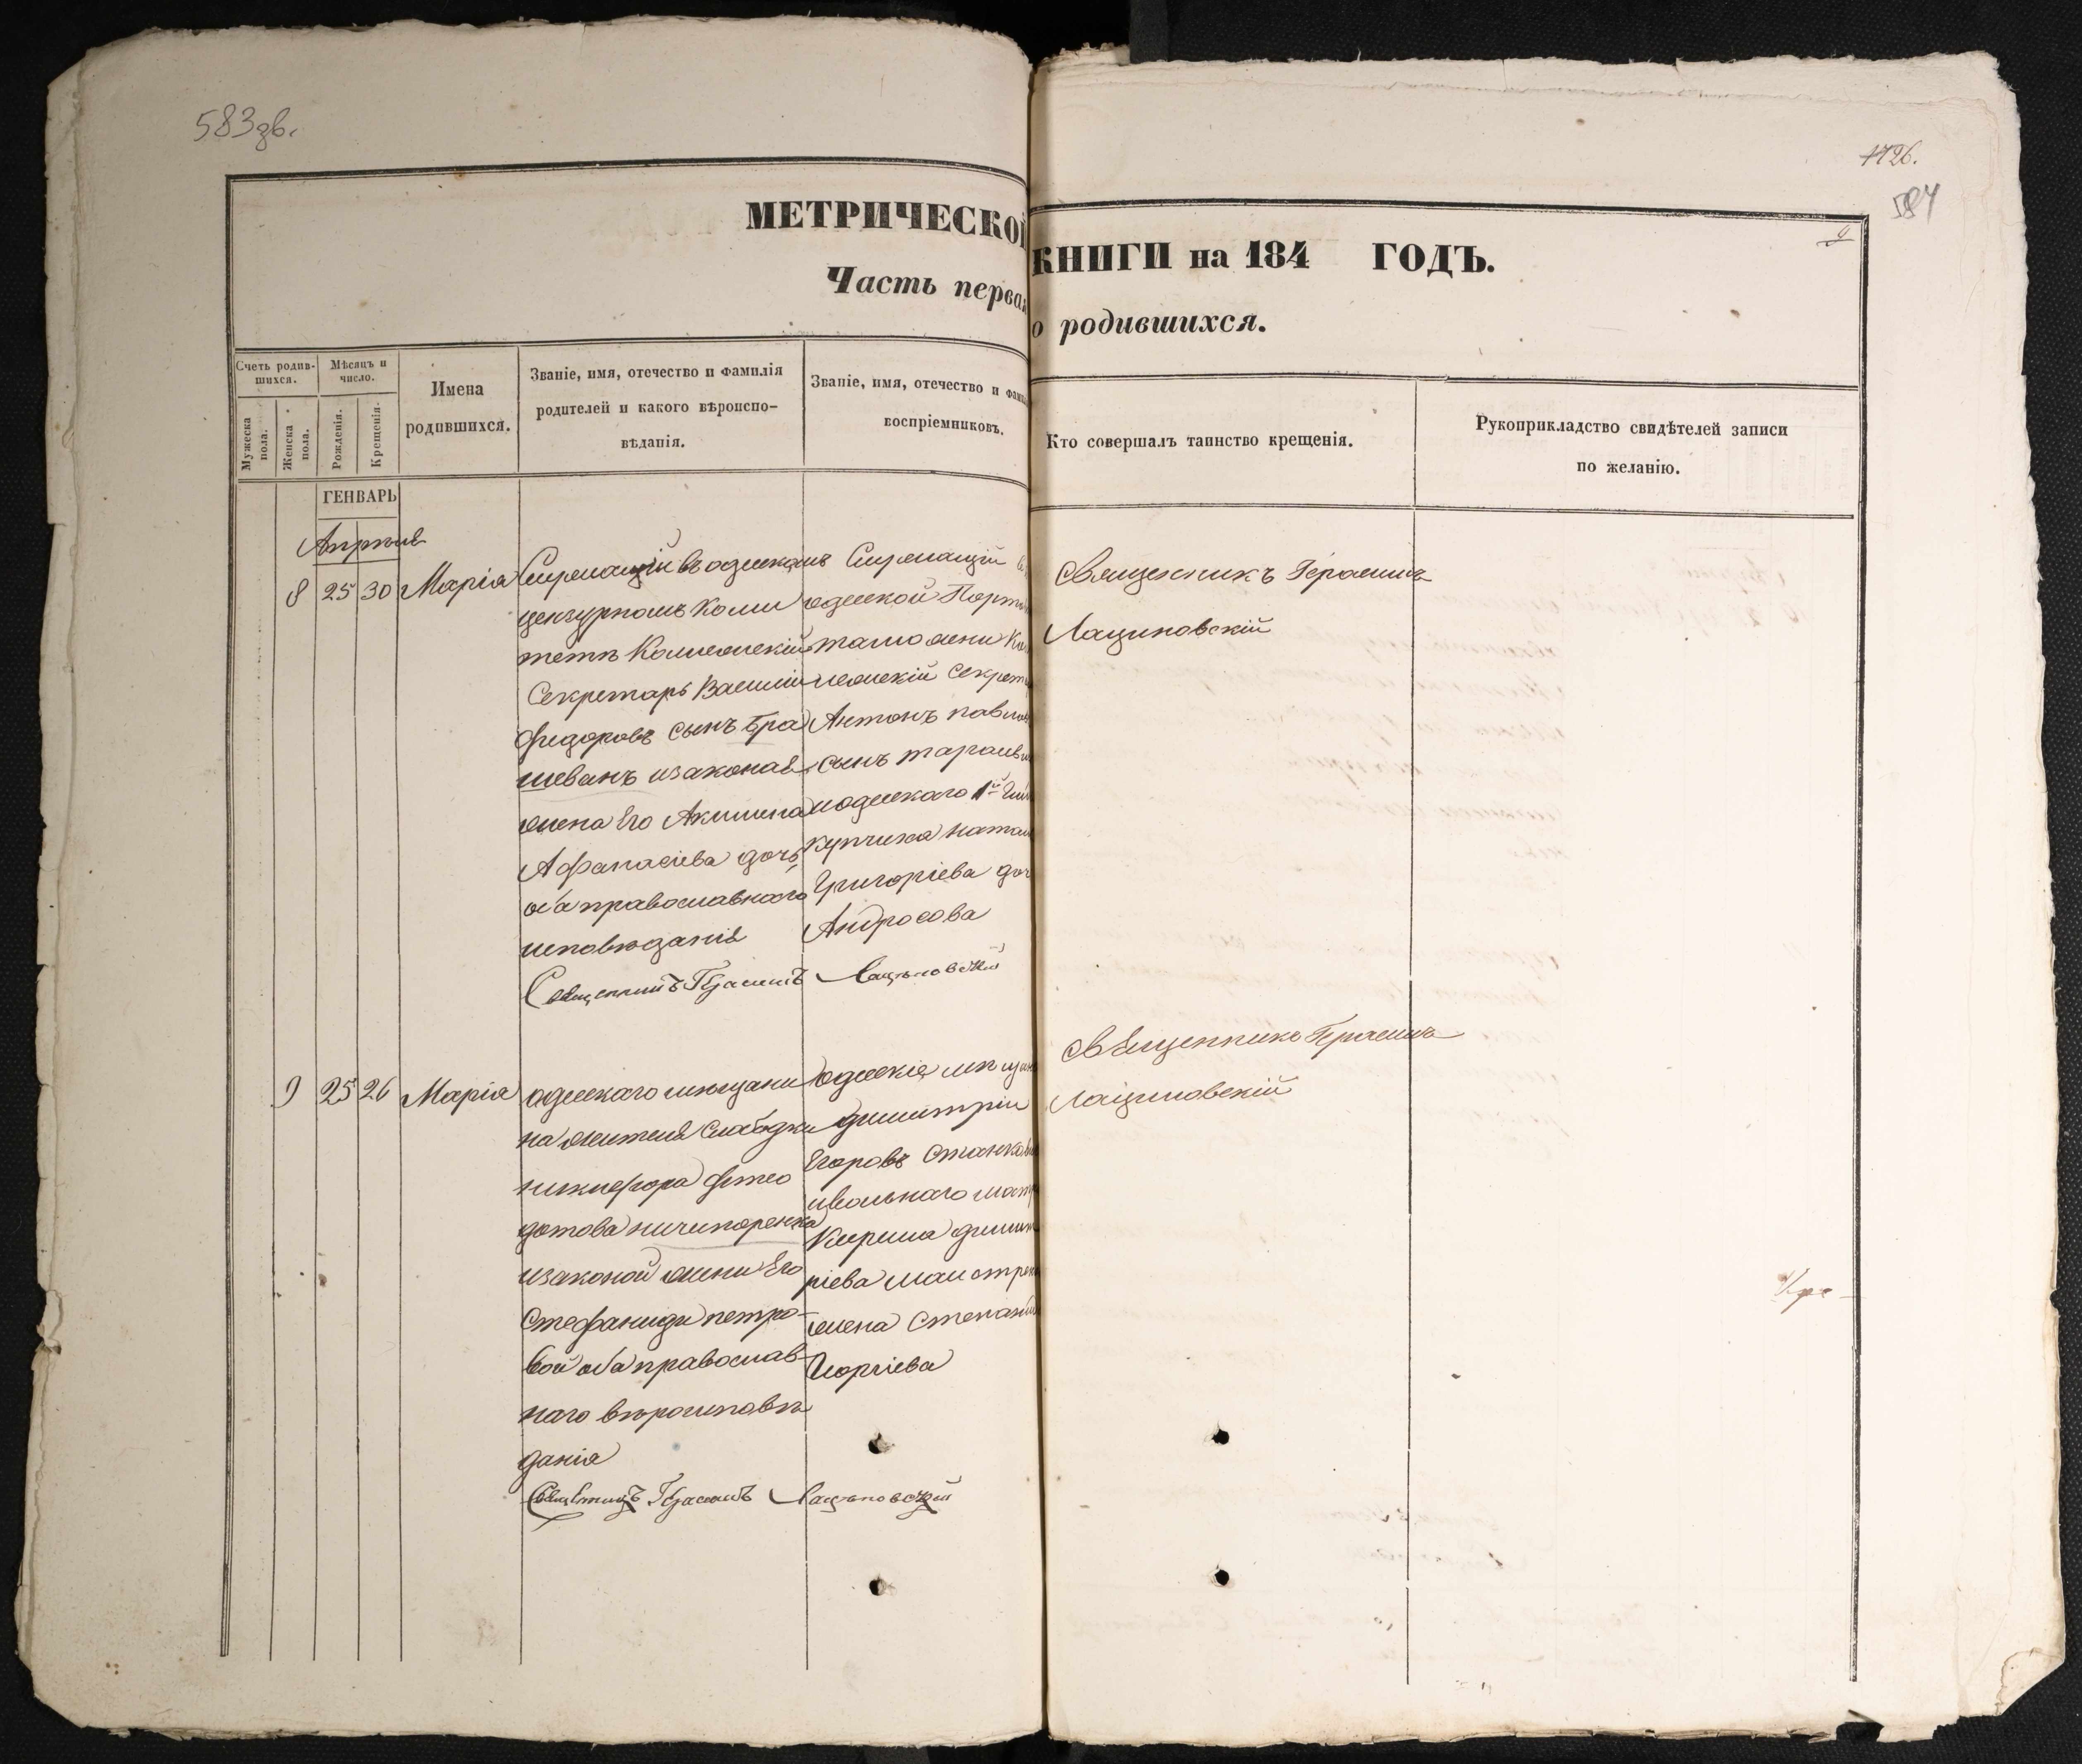 583зв.
1726.
584
МЕТРИЧЕСКОЙ КНИГИ на 184 ГОДЪ.
Часть первая о родившихся.
Счетъ родив-
шихся.
Мужеска
пола.
Женска
пола.
Мѣсяцъ и
число.
Рожденія.
Крещенія.
Имена
родившихся.
Званіе, имя, отечество и фамилія
родителей и какого вѣроиспо-
вѣданія.
Званіе, имя, отечество и фами
воспріемниковъ.
Кто совершалъ таинство крещенія.
Рукоприкладство свидѣтелей записи
по желанію.
ГЕНВАРЬ
Апрѣль
8 25 30 Марія
Служащій въ одескомъ
цензурномъ Коми
тетѣ Колежскій
Секретарь Василій
Федоровъ сынъ Бра
шеванъ изаконая
жена Его Акилина
Афанасіева дочь
оба православнаго
исповѣданія
Священникъ Герасимъ Лациновскій
Служащій
одеской Порто
таможни Ко
лежскій Секрет
Антонъ павлов
сынъ
иодескаго 1й Гил
купчиха натал
Григоріева доч
Андросова
Священникъ Герасимъ
Лациновскій
9 25 26 Марія
одескаго мѣщани
на жителя Слабодки
никифора Фео
дотова ничипоренка
изаконой жени Его
Стефаниди петро-
вой оба православ-
наго вѣроисповѣ
данія
Священникъ Герасимъ Лациновскій
одескіе мѣщан
димитрій
Егоровъ Станков
ивольнаго мат
Кирила димит
ріева
жена Степани
Георгіева
Священникъ Герасимъ
Лациновскій